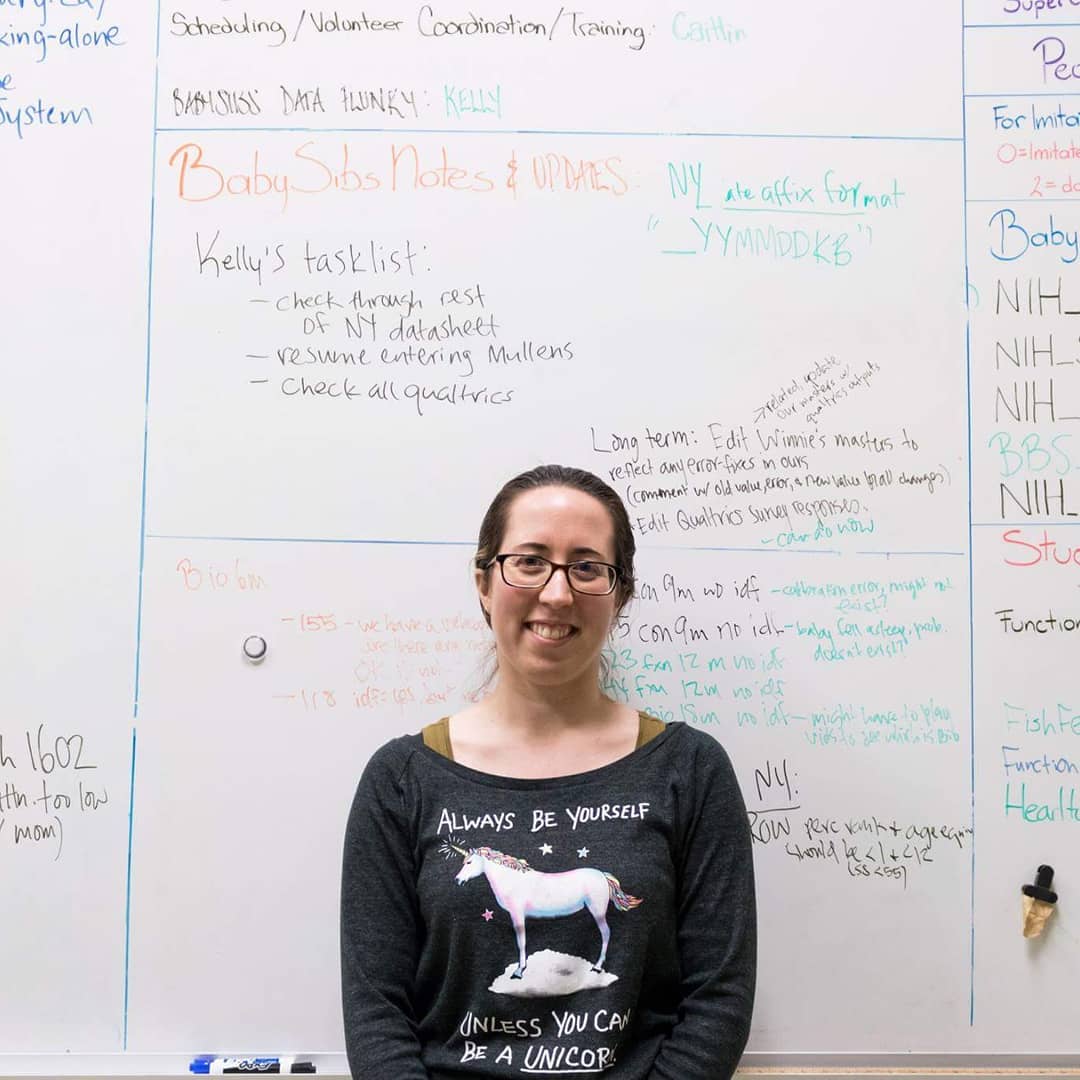 king-alone
System
Scheduling/Volunteer Coordination/Training: Caitlin
BABYSIBS DATA FLUNKY: KELLY
BabySibs Notes & UPDATES:
NY ate affix format
"_YYMMDDKB"
Kelly's tasklist:
- check through rest
of NY datasheet
- resume entering Mullens
- Check all qualtrics
→ related, update
our masters w/
qualtrics outputs
Long term: Edit Winnie's masters to
reflect any error-fixes in ours
(comment w/ old value, error, & new value for all changes)
Edit Qualtrics Survey responses.
- can do now
Bio 6m
- 155 - we have a
- 118 idf=
con 9m no idf - calibration error, might not
exist?
5 con 9m no idf - baby fell asleep, prob.
doesn't exist?
23 fxn 12 m no idf
fxn 12m no idf
18m no idf - might have to play
vids to see which is Bio
NY:
ROW perc rank + age equiv
should be <1 + <12
(ss <55)
h 1602
too low
mom)
For Imita
0=Imitate
2=do
Baby
NIH_
NIH_
NIH_
BBS_
NIH_
Stu
Function
FishFe
Function
Hearlt
ALWAYS BE YOURSELF
UNLESS YOU CAN
BE A UNICOR